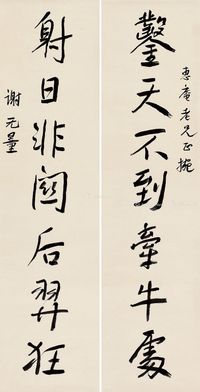 鑿天不到牽牛處
惠庵老兄正腕
射日非關后羿狂
谢无量